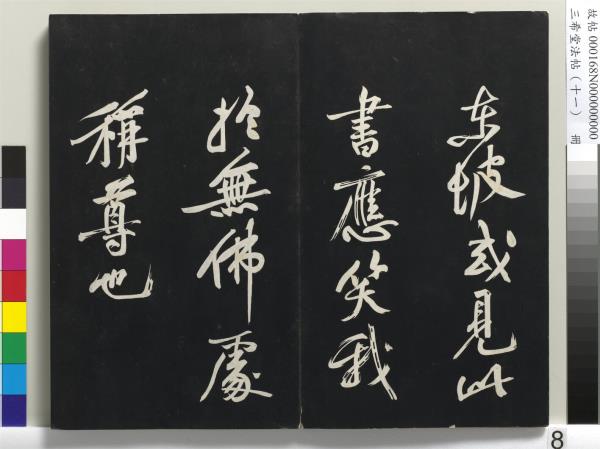 东坡或見此
書應笑我
於無佛處
稱尊也
故帖 000168N000000000
三希堂法帖（十一） 冊
8